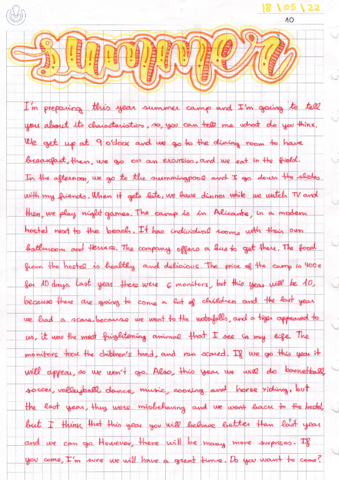 18/05/22
10
summer
I'm preparing this year summer camp and I'm going to tell
you about its characteristics, so, you can tell me what do you think.
We get up at 9 o'clock and we go to the dining room to have
breakfast, then, we go on an excursion, and we eat in the field.
In the afternoon, we go to the swimmingpool and I go down the slides
with my friends. When it gets late, we have dinner while we watch TV and
then, we play night games. The camp is in Alicante, in a modern
hostel next to the beach. It has individual rooms with their own
bathroom and terrace. The company offers a bus to get there. The food
from the hostel is healthy and delicious. The price of the camp is 400€
for 10 days. Last year there were 6 monitors, but this year will be 10,
because there are going to come a lot of children and the last year
we had a scare because we went to the waterfalls, and a tiger appeared to
us, it was the most frightening animal that I see in my life. The
monitors took the children's hand, and ran scared. If we go this year it
will appear, so we won't go. Also, this year we will do basketball,
soccer, volleyball, dance, music, cooking and horse riding, but
the last year, they were misbehaving and we went back to the hostel,
but I think that this year you will behave better than last year
and we can go. However, there will be many more surprises. If
you come, I'm sure we will have a great time. Do you want to come?